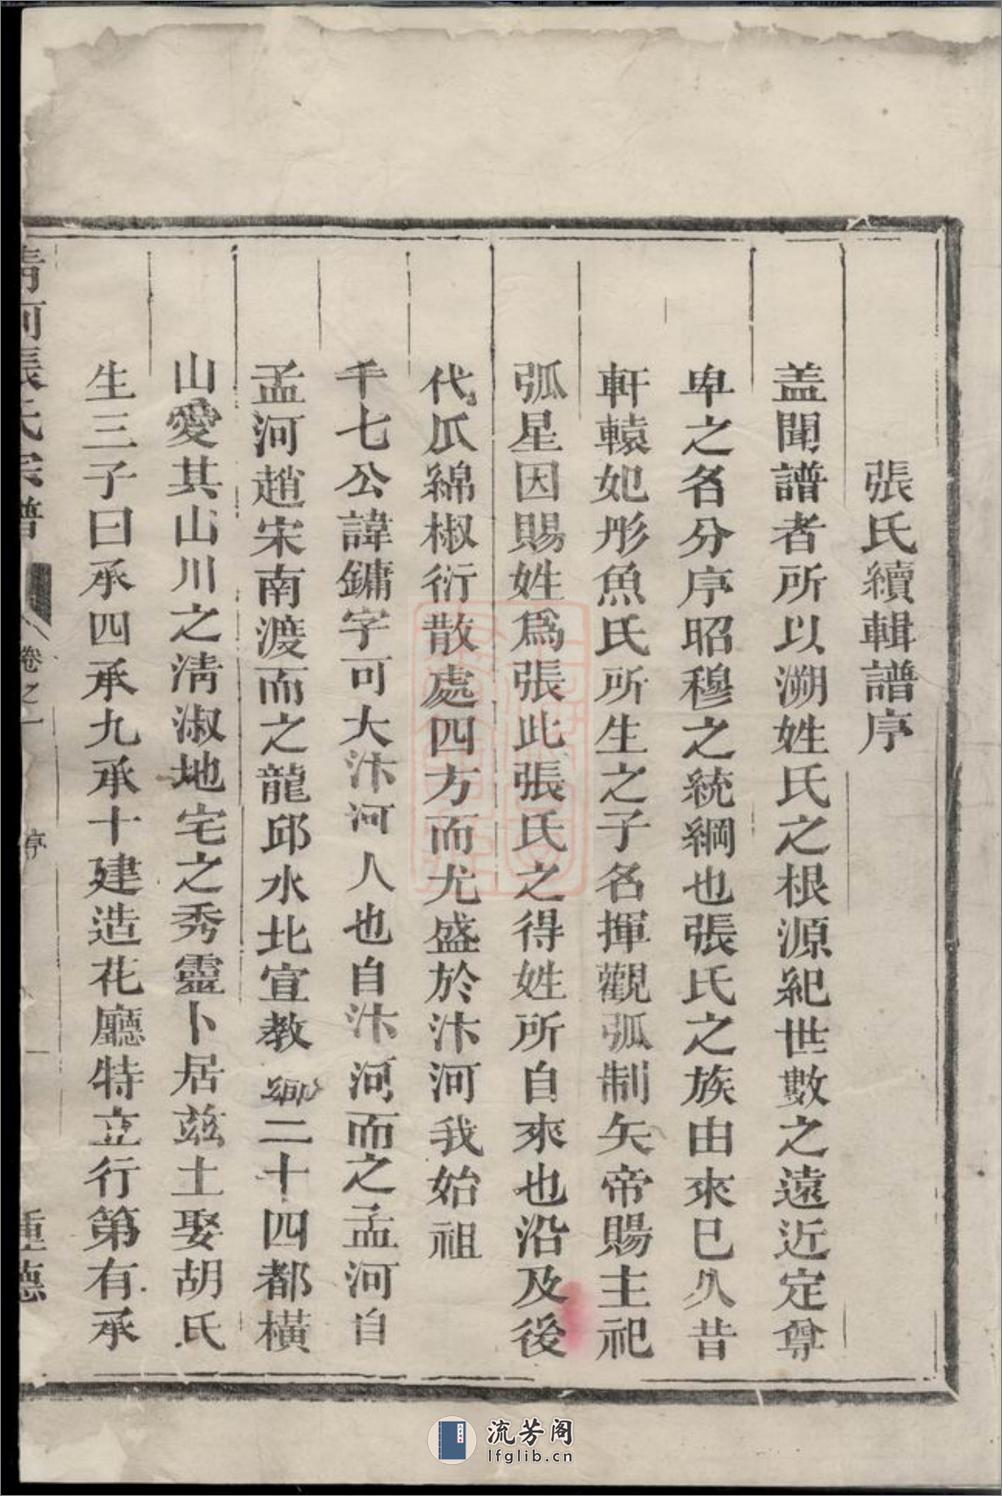 張氏續輯譜序
盖聞譜者所以溯姓氏之根源紀世數之遠近定尊
卑之名分序昭穆之統綱也張氏之族由來巳久昔
軒轅妃彤魚氏所生之子名揮觀弧制矢帝賜主祀
弧星因賜姓為張此張氏之得姓所自來也沿及後
代瓜綿椒衍散處四方而尤盛於汴河我始祖
千七公諱鏞字可大汴河人也自汴河而之孟河自
孟河趙宋南渡而之龍邱水北宣教鄉二十四都橫
山愛其山川之淸淑地宅之秀靈卜居兹土娶胡氏
生三子曰承四承九承十建造花廳特立行第有承
清河張氏宗譜 卷之一 序 一 重德
流芳阁
lfglib.cn